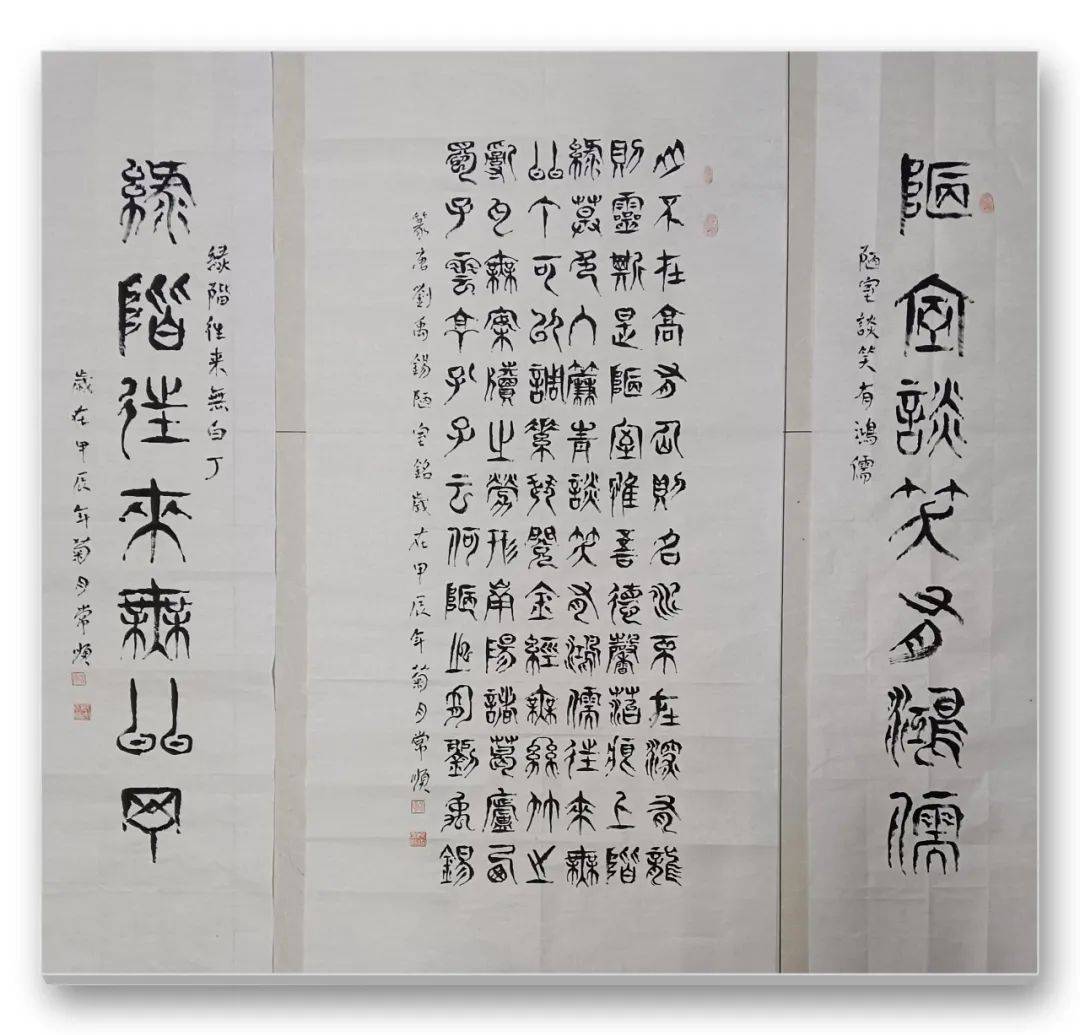 陋室談笑有鴻儒
陋室談笑有鴻儒
山不在高有仙則名水不在深有龍
則靈斯是陋室惟吾德馨苔痕上階
緑草色入簾青談笑有鴻儒往來無
白丁可以調素琴閱金經無絲竹之
亂耳無案牘之勞形南陽諸葛廬西
蜀子雲亭孔子云何陋之有劉禹錫
篆唐劉禹錫陋室銘歲在甲辰年菊月常順
緑階往來無白丁
緑階往来無白丁
歲在甲辰年菊月常順